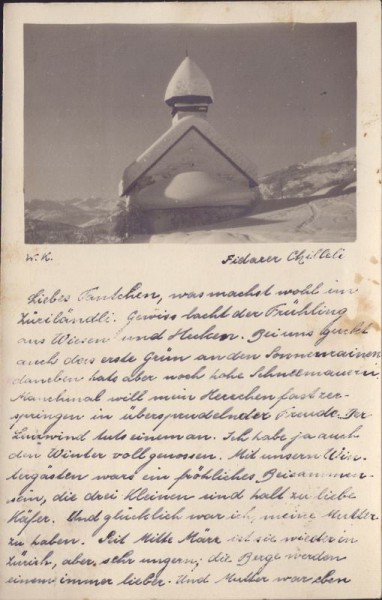 W. K. Fiderer Chilleli
Liebes Tantchen, was machst wohl im
Züriländtli. Gewiss lacht der Frühling
aus Wiesen und Hecken. Bei uns guckt
auch das erste Grün an den Sonnenrainen
daneben hats aber noch hohe Schneemauern.
Manchmal will mein Herzchen fast zer-
springen in übersprudelnder Freude. Der
Lenzwind tuts einem an. Ich habe ja auch
den Winter voll genossen. Mit unsern Win-
tergästen wars ein fröhliches Beisammen-
sein, die drei Kleinen sind halt zu liebe
Käfer. Und glücklich war ich, meine Mutter
zu haben. Seit Mitte März ist sie wieder in
Zürich, aber sehr ungern; die Berge werden
einem immer lieber. Und Mutter war eben